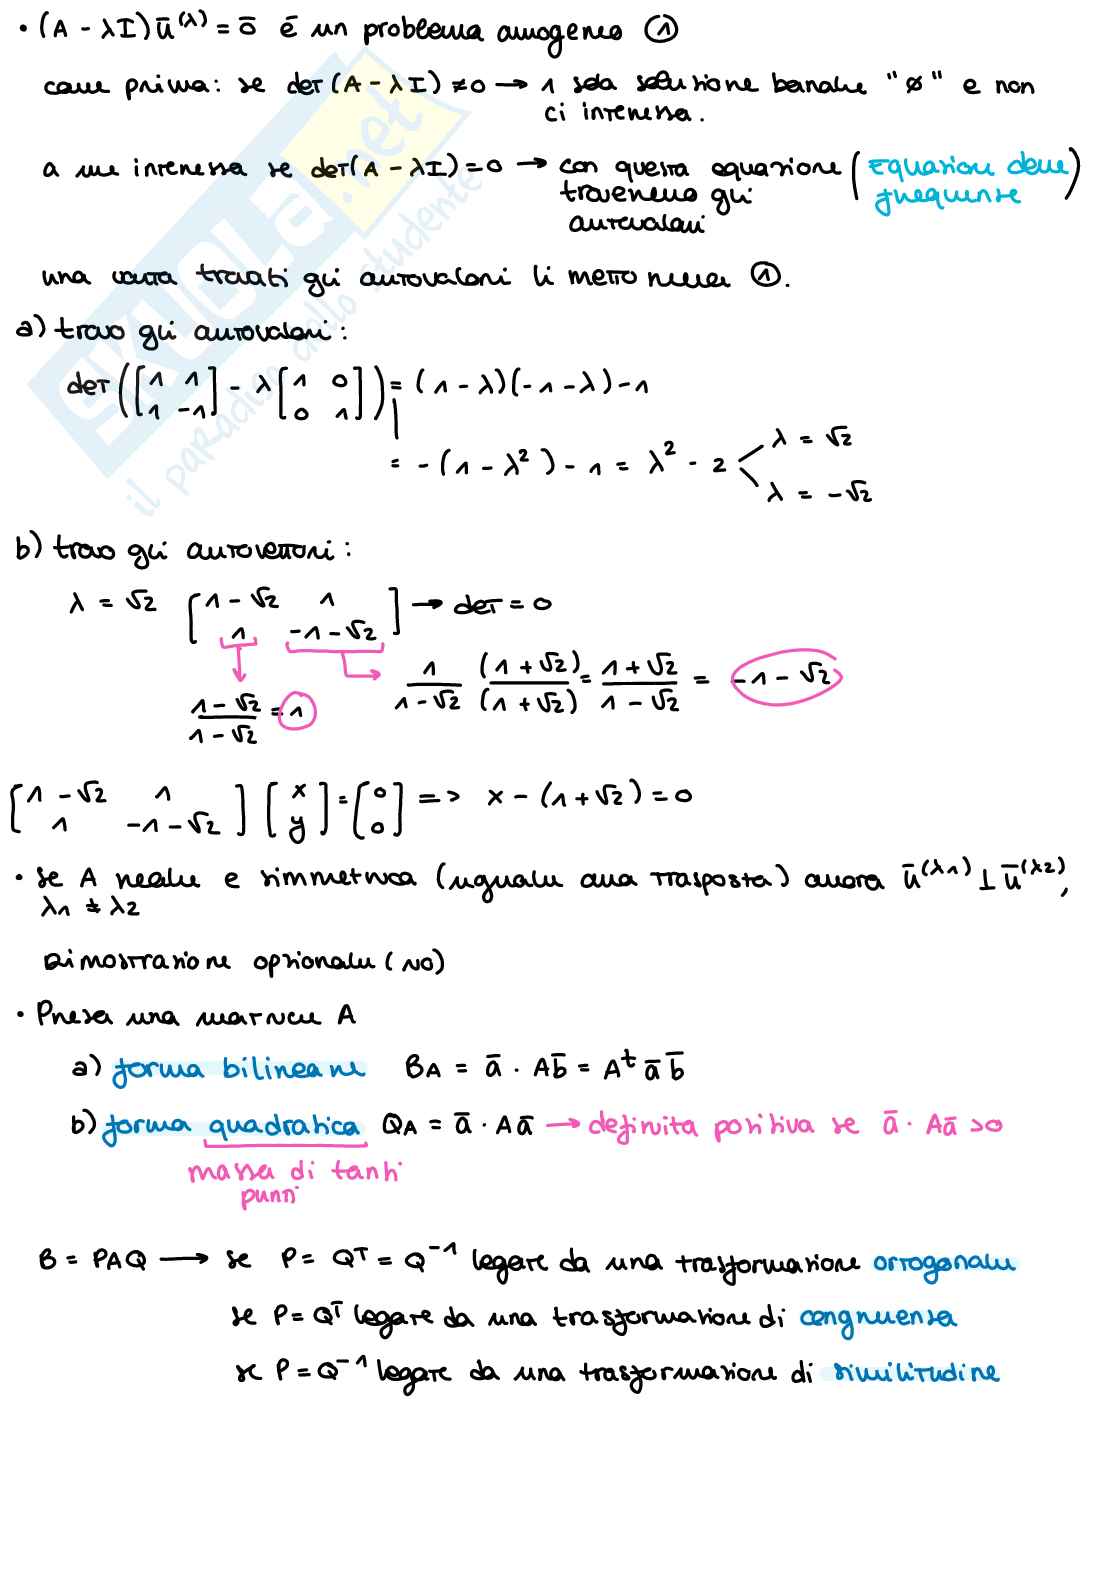 • (A - λI)ū^(λ) = ō é un problema omogeneo ①
come prima: se det(A - λI) ≠ 0 → 1 sola soluzione banale "ø" e non
ci interessa.
a me interessa se det(A - λI) = 0 → con questa equazione (Equazione delle
troveremo gli frequenze)
autovalori
una volta trovati gli autovalori li metto nella ①.
a) trovo gli autovalori:
det([1 1; 1 -1] - λ[1 0; 0 1]) = (1 - λ)(-1 - λ) - 1
= -(1 - λ²) - 1 = λ² - 2 λ = √2
λ = -√2
b) trovo gli autovettori:
λ = √2 [1 - √2 1; 1 -1 - √2] → det = 0
(1 - √2)/(1 - √2) = 1 1/(1 - √2) (1 + √2)/(1 + √2) = (1 + √2)/(1 - √2) = -1 - √2
[1 - √2 1; 1 -1 - √2] [x; y] = [0; 0] => x - (1 + √2) = 0
• se A reale e simmetrica (uguale alla trasposta) allora ū^(λ1) ⊥ ū^(λ2),
λ1 ≠ λ2
Dimostrazione opzionale (NO)
• Presa una matrice A
a) forma bilineare BA = ā · Ab̄ = A^t ā b̄
b) forma quadratica QA = ā · Aā → definita positiva se ā · Aā > 0
massa di tanti
punti
B = PAQ → se P = Q^T = Q^-1 legate da una trasformazione ortogonale
se P = Q^T legate da una trasformazione di congruenza
se P = Q^-1 legate da una trasformazione di similitudine
SKUOLA.net
il paradiso dello studente